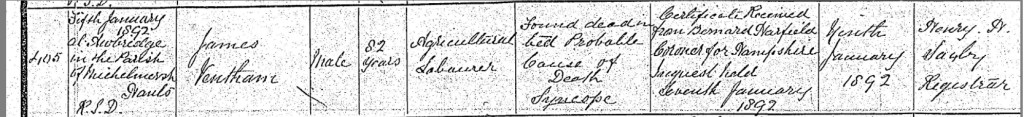 R.S.D.
405
Fifth January
1892
at Awbridge
in the Parish
of Michelmersh
Hants
R.S.D.
James
Ventham
Male
82
years
Agricultural
Labourer
Found dead in
bed Probable
Cause of
Death
Syncope
Certificate Received
from Bernard Harfield
Coroner for Hampshire
Inquest held
Seventh January
1892
Ninth
January
1892
Henry
Registrar